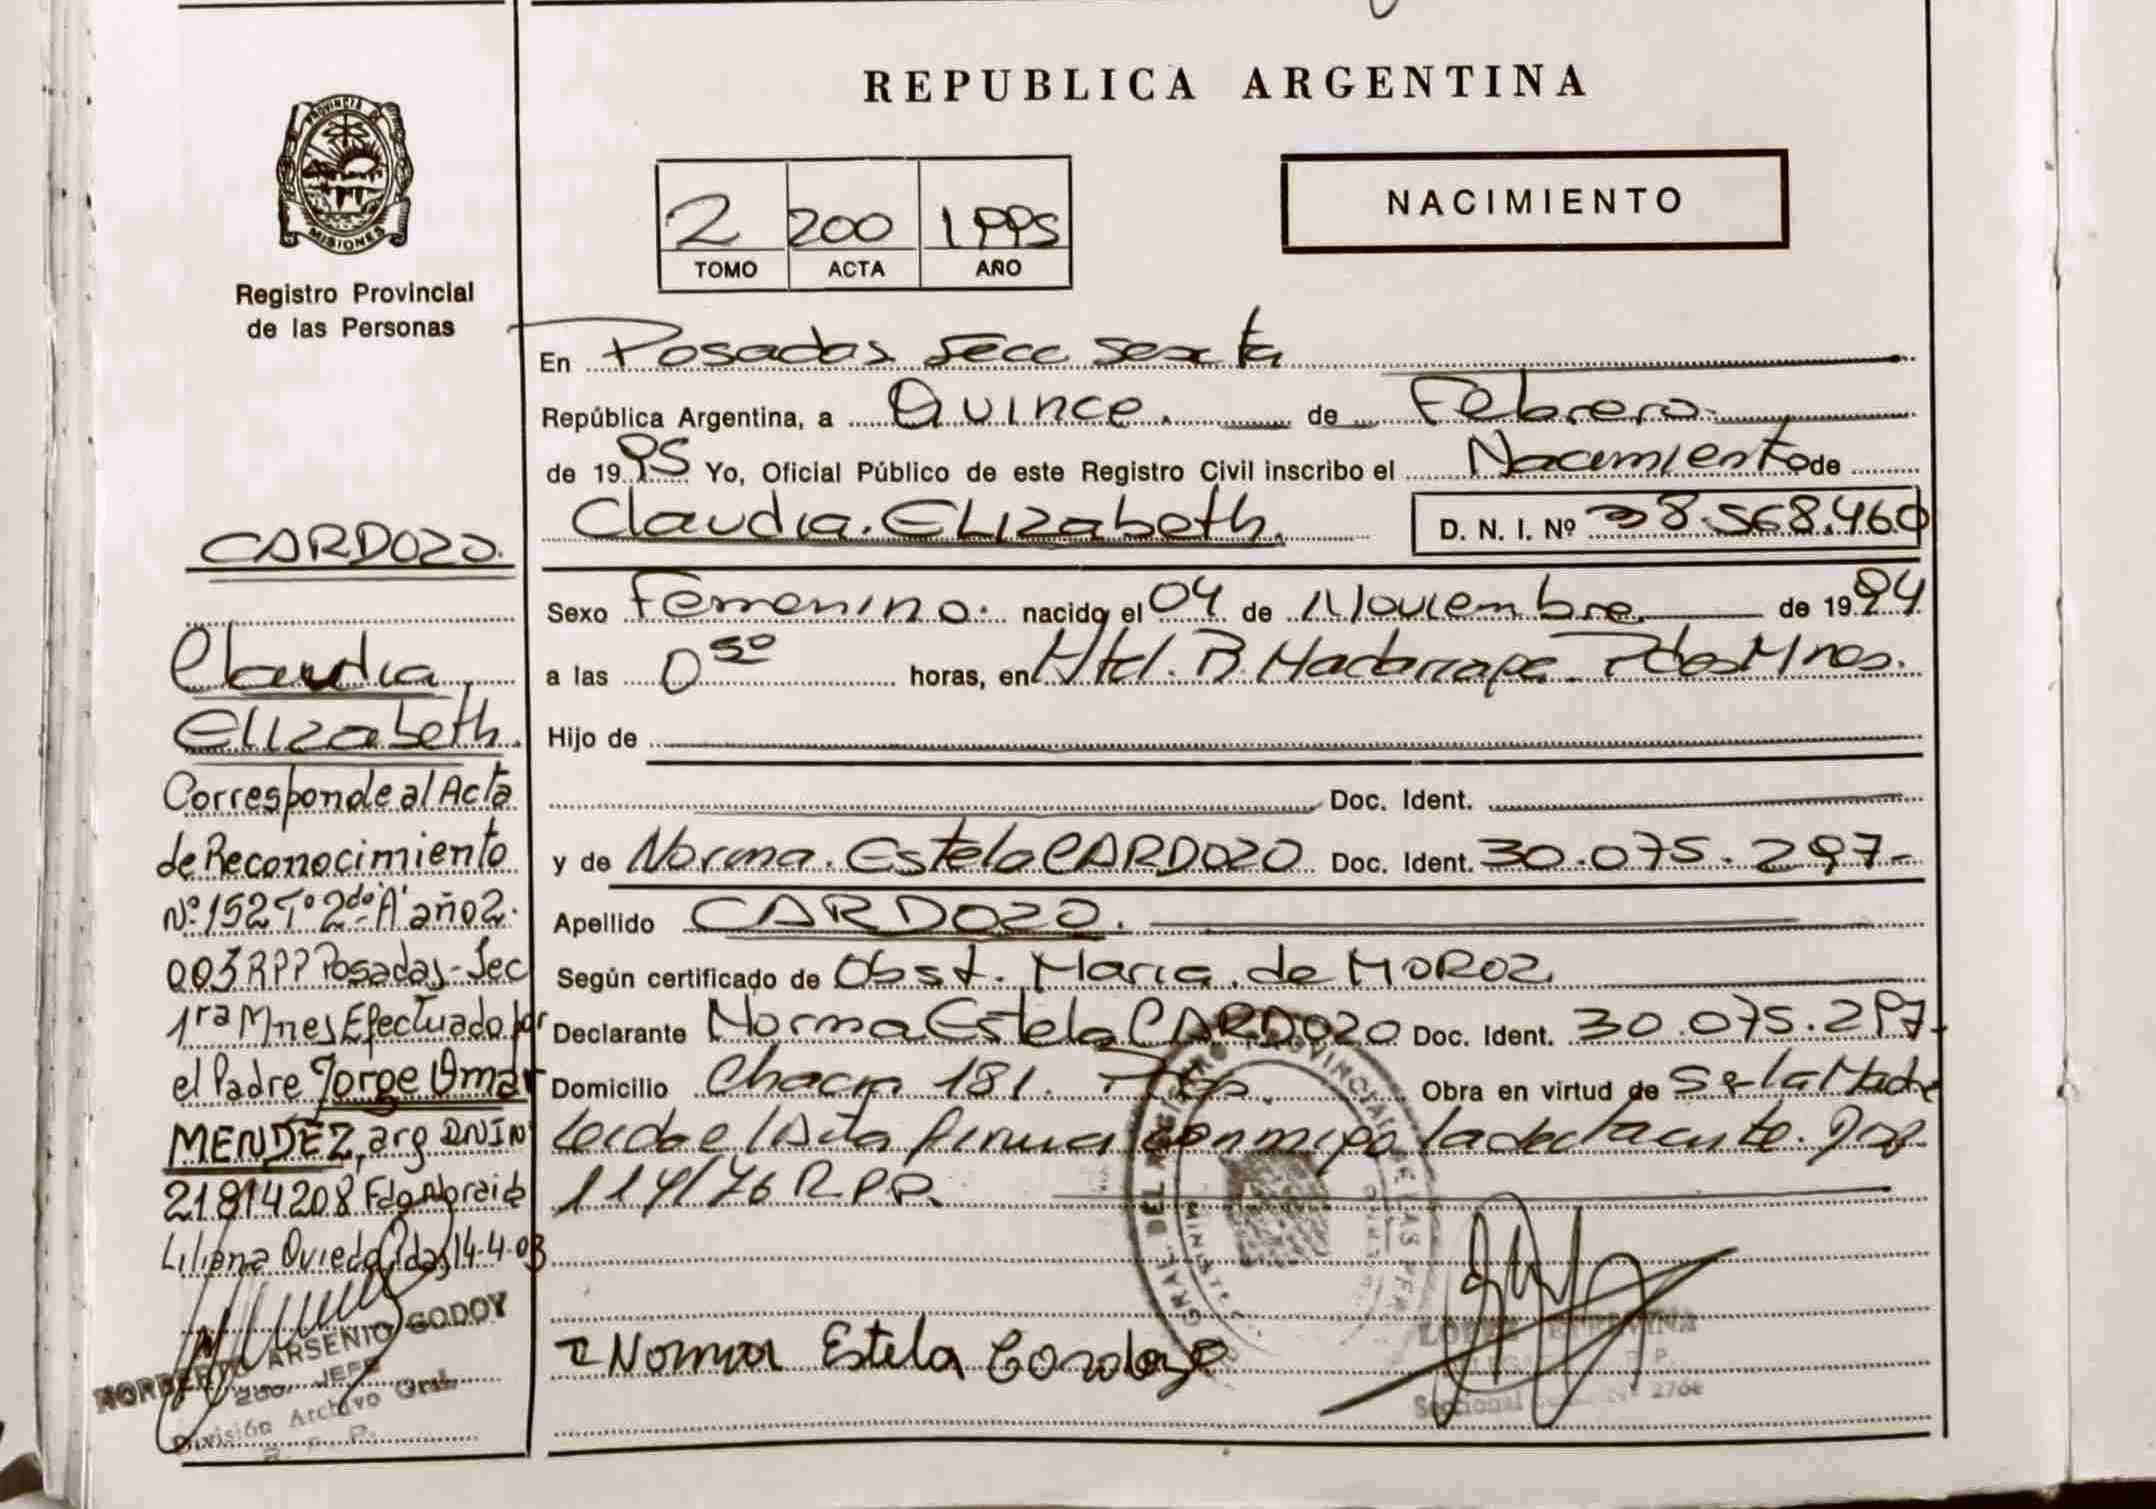 REPUBLICA ARGENTINA
PROVINCIA DE
MISIONES
Registro Provincial
de las Personas
2 200 1995
TOMO ACTA AÑO
NACIMIENTO
En Posadas Secc Sexta
República Argentina, a Quince de Febrero
de 1995 Yo, Oficial Público de este Registro Civil inscribo el Nacimiento de
Claudia Elizabeth D. N. I. Nº 38.568.460
Sexo Femenino nacido el 04 de Noviembre de 1994
a las 0 50 horas, en Htal. R. Madariaga Pdas Mnes.
Hijo de
Doc. Ident.
y de Norma Estela CARDOZO Doc. Ident. 30.075.297
Apellido CARDOZO
Según certificado de Obst. Maria de MOROZ
Declarante Norma Estela CARDOZO Doc. Ident. 30.075.297
Domicilio Chacra 181. Obra en virtud de Ser la Madre
Leida el Acta firma conmigo la declarante.
114/76 R.P.P.
Norma Estela Cardozo
Seccional
CARDOZO
Claudia
Elizabeth
Corresponde al Acta
de Reconocimiento
Nº 152 Tº 2do "A" año 2.
003 RPP Posadas-Sec
1ra Mnes Efectuado por
el Padre Jorge Omar
MENDEZ, arg DNI N
21814208 Fdo
Liliana Oviedo Pdas 14-4-03
NORBERTO ARSENIO GODOY
JEFE
División Archivo Gral.
R. P. P.